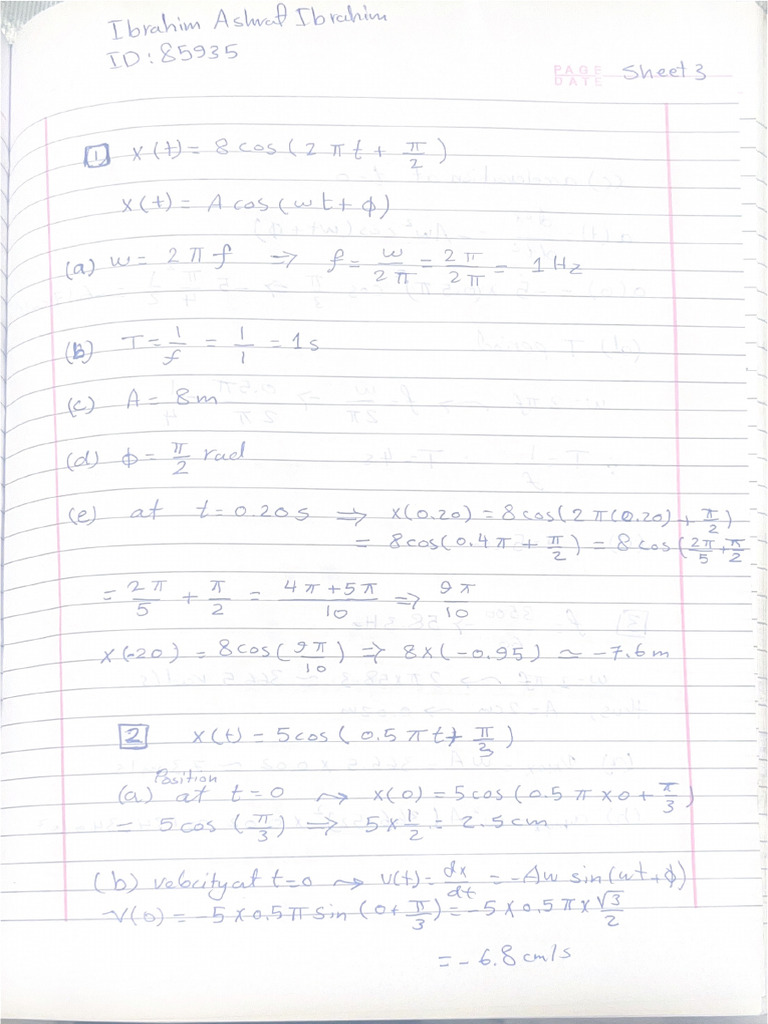 Ibrahim Ashraf Ibrahim
ID: 85935
PAGE
DATE
Sheet 3
1 x(t) = 8 cos(2πt + π/2)
x(t) = A cos(ωt + ϕ)
(a) ω = 2πf ⇒ f = ω/2π = 2π/2π = 1 Hz
(b) T = 1/f = 1/1 = 1s
(c) A = 8m
(d) ϕ = π/2 rad
(e) at t = 0.20s ⇒ x(0.20) = 8 cos(2π(0.20) + π/2)
= 8cos(0.4π + π/2) = 8 cos(2π/5 + π/2
= 2π/5 + π/2 = 4π+5π/10 ⇒ 9π/10
x(-20) = 8cos(9π/10) ⇒ 8x(-0.95) ≃ -7.6m
2 x(t) = 5cos(0.5πt + π/3)
Position
(a) at t=0 ⇝ x(0) = 5cos(0.5π x 0 + π/3)
= 5cos(π/3) ⇒ 5x1/2 = 2.5cm.
(b) velocity at t=0 ⇝ v(t) = dx/dt = -Aω sin(ωt + ϕ)
v(0) = -5 x 0.5π sin(0 + π/3) = -5 x 0.5π x √3/2
= -6.8 cm/s